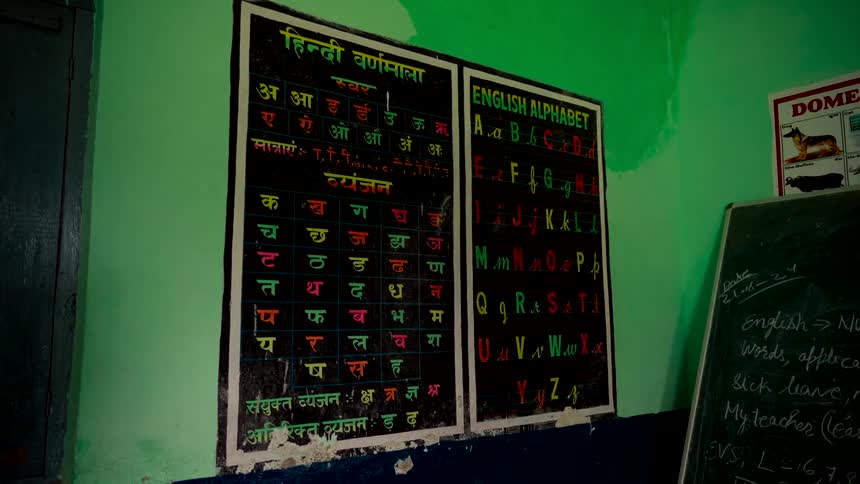 हिन्दी वर्णमाला
स्वर
अ आ इ ई उ ऊ ऋ
ए ऐ ओ औ अं अः
मात्राएं:-
व्यंजन
क ख ग घ ङ
च छ ज झ ञ
ट ठ ड ढ ण
त थ द ध न
प फ ब भ म
य र ल व श
ष स ह
संयुक्त व्यंजन: क्ष त्र ज्ञ श्र
अतिरिक्त व्यंजन: ड़ ढ़
ENGLISH ALPHABET
A a B b C c D d
E e F f G g H h
I i J j K k L l
M m N n O o P p
Q q R r S s T t
U u V v W w X x
Y y Z z
DOME
Dog
Cat
Date
English →
Words,
Sick leave,
My teacher
EVS, L-16, 7, 8